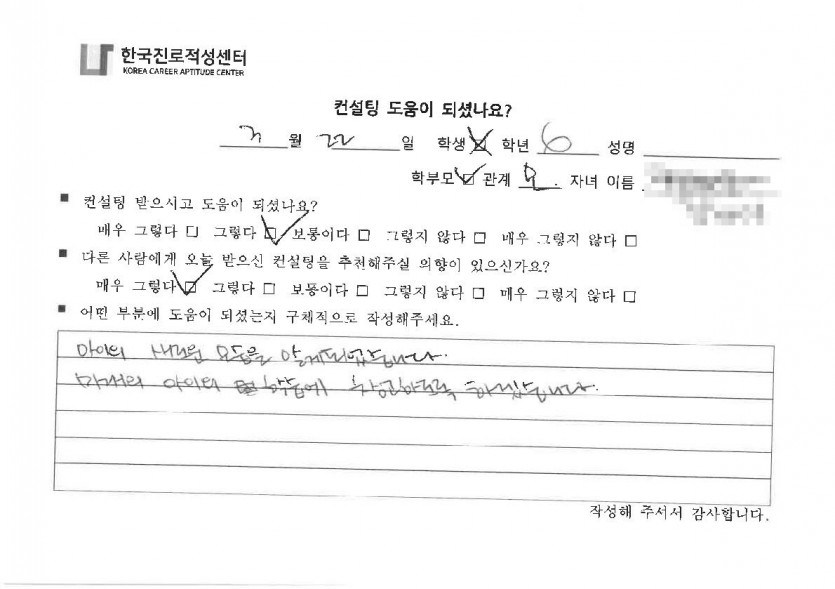 한국진로적성센터
KOREA CAREER APTITUDE CENTER
컨설팅 도움이 되셨나요?
월 22 일 학생 ☑ 학년 6 성명
학부모 ☑ 관계 모. 자녀 이름
■ 컨설팅 받으시고 도움이 되셨나요?
매우 그렇다 □ 그렇다 ☑ 보통이다 □ 그렇지 않다 □ 매우 그렇지 않다 □
■ 다른 사람에게 오늘 받으신 컨설팅을 추천해주실 의향이 있으신가요?
매우 그렇다 ☑ 그렇다 □ 보통이다 □ 그렇지 않다 □ 매우 그렇지 않다 □
■ 어떤 부분에 도움이 되셨는지 구체적으로 작성해주세요.
아이의 새로운 모습을 알게되었습니다.
아이의 학습에 참고하도록 하겠습니다.
작성해 주셔서 감사합니다.